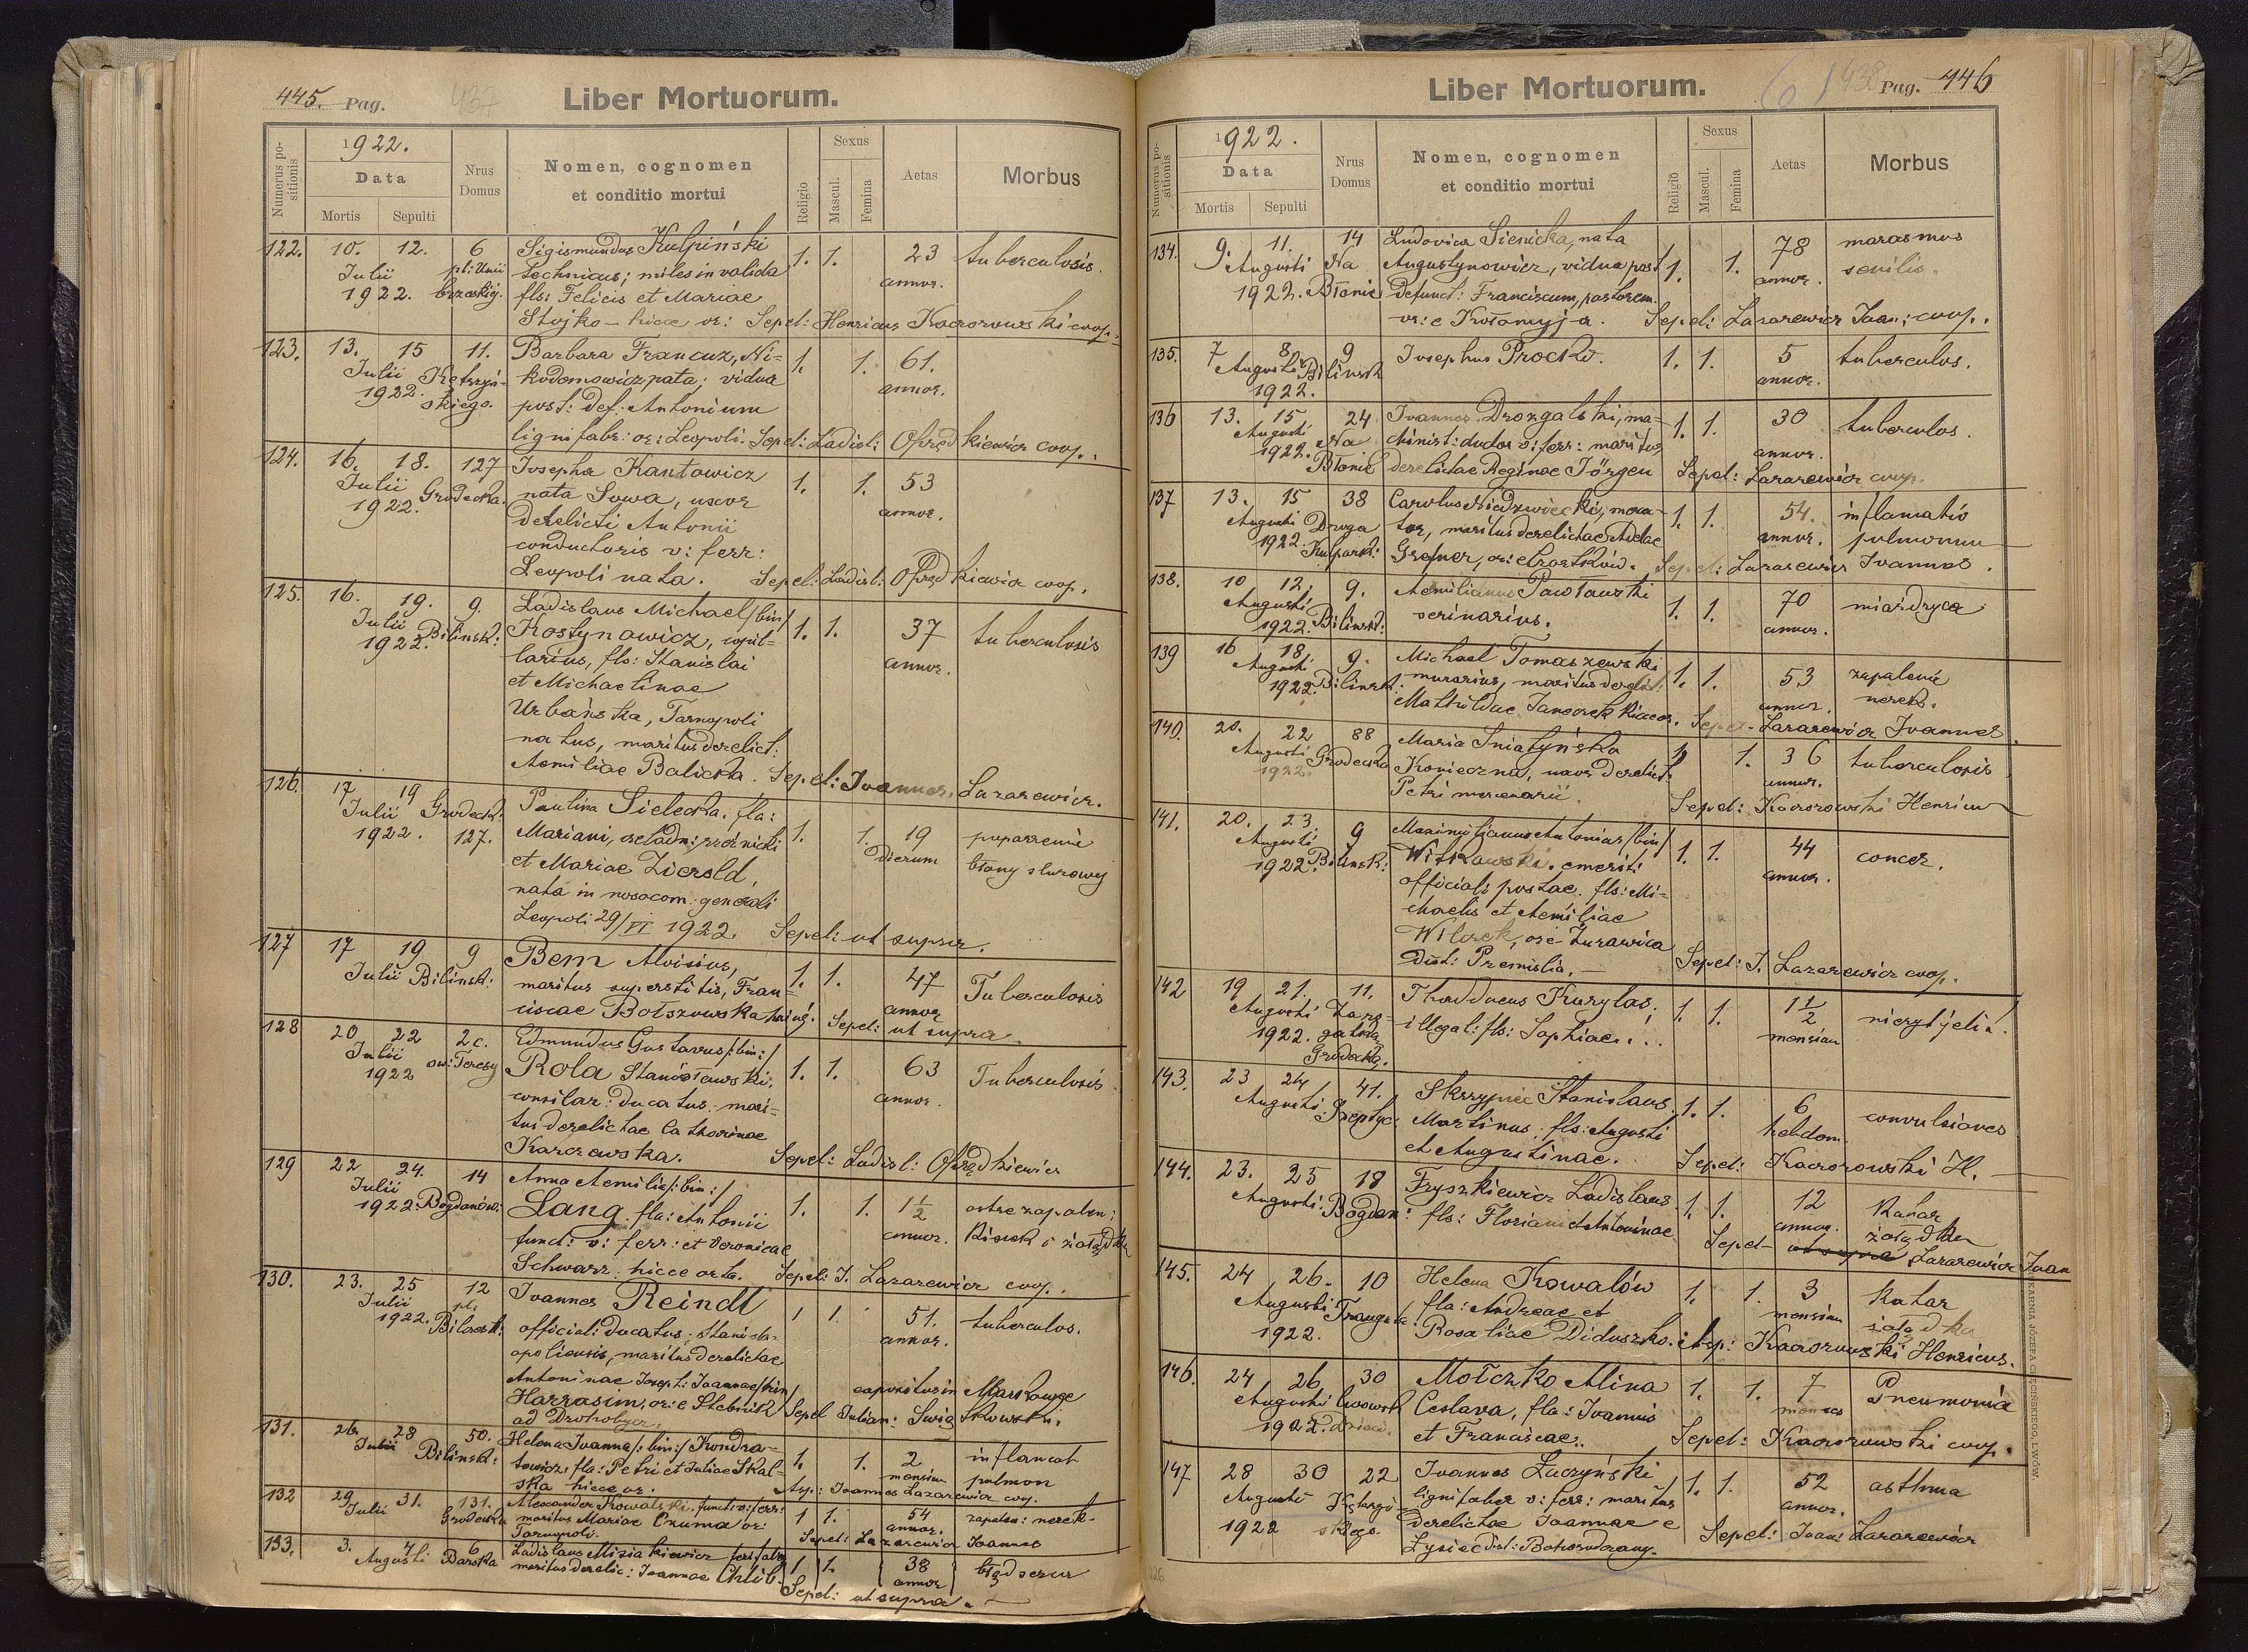 445. Pag.
437
Liber Mortuorum.
Numerus positionis
1922.
Data
Mortis
Sepulti
Nrus Domus
Nomen, cognomen
et conditio mortui
Religio
Sexus
Mascul.
Femina
Aetas
Morbus
122. 10. 12. 6 Sigismundus Kulpiński 1. 1. 23 tuberculosis.
Julii pl: Unii technicus; miles invalida annor.
1922. brzeskiej. fls: Felicis et Mariae
Stojko – hicce or: Sepel: Henricus Kaczorowski coop.
123. 13. 15 11. Barbara Francuz, Ni- 1. 1. 61.
Julii Kętrzyń- kodomowicz nata; vidua annor.
1922. skiego. post: def: Antonium
ligni fabr: or: Leopoli. Sepel: Ladisl: Oprzędkiewicz coop.
124. 16. 18. 127 Josepha Kantowicz 1. 1. 53
Julii Grodecka. nata Sowa, uxor annor.
1922. derelicti Antonii
conductoris v: ferr:
Leopoli nata. Sepel: Ladisl: Oprzędkiewicz coop.
125. 16. 19. 9. Ladislaus Michael /bin/ 1. 1. 37 tuberculosis
Julii Bilińsk: Kostynowicz, annor.
1922. larius, fls: Stanislai
et Michaelinae
Urbańska, Tarnopoli
natus, maritus derelict:
Aemiliae Balicka. Sepel: Joannes Lazarewicz.
126. 17 19 Grodeck: Paulina Sielecka. fla: 1. 1. 19 poparzenie
Julii 127. Mariani, dierum błony
1922. et Mariae Zierold,
nata in nosocom: generali
Leopoli 29/VI 1922. Sepel: ut supra.
127 17 19 9 Bem Aloisius, 1. 1. 47 Tuberculosis
Julii Bilińsk: maritus superstitis, Fran- annor
ciscae Botszowska Sepel: ut supra.
128 20 22 2c. Edmundus Gustavus /:bin:/ 1. 1. 63 Tuberculosis
Julii św: Teresy Rola Stanisławski, annor.
1922 consiliar: ducatus: mari-
tus derelictae Catharinae
Karczewska. Sepel: Ladisl: Oprzędkiewicz
129 22 24. 14 Anna Aemilia /:bin:/ 1. 1. 1½ ostre zapalen:
Julii Bogdanów: Lang. fla: Antonii annor. kiszek i żołądka
1922. funct: v: ferr: et Veronicae
Schwarz hicce orta. Sepel: J. Lazarewicz coop.
130. 23. 25 12 Joannes Reindl 1 1. 51. tuberculos.
Julii pl. official: ducatus: Stanisla- annor.
1922. Bilczsk: opoliensis, maritus derelictae
Antoninae Joseph: Joannae /bin/ expositus in
Harrasim, or: e Stebnik Sepel Julian:
ad Drohobycz.
131. 26 28 50. Helena Joanna /:bin:/ Kondra- 1. 1. 2 inflamat
Julii Bilińsk: towicz: fla: Petri et Juliae Skal- mensium pulmon
ska hicce or. Asp.: Joannes Lazarewicz coop.
132 29 31. 131. Alexander Kowalski. funct: v: ferr: 1 1. 54 zapalen: nerek.
Julii Grodecka maritus Mariae Czuma or: annor.
Tarnopoli. Sepel: Lazarewicz Joannes
133. 3. 4 6 Ladislaus Misiakiewicz 1 1. 38 błąd serca
Augusti Barska maritus derelic: Joannae annor
Sepel: ut supra.
Liber Mortuorum.
61 438 Pag. 446
Numerus positionis
1922.
Data
Mortis
Sepulti
Nrus Domus
Nomen, cognomen
et conditio mortui
Religio
Sexus
Mascul.
Femina
Aetas
Morbus
134. 9. 11. 14 Ludovica Sienicka, nata 1. 1. 78 marasmus
Augusti Na Augustynowicz, vidua post annor. senilis.
1922. Błonie defunct: Franciscum,
or: e Kołomyja. Sepel: Lazarewicz Joan: coop.
135. 7 8 9 Josephus Procków. 1. 1. 5 tuberculos.
Augusti Bilińsk annor.
1922.
136 13. 15 24 Joannes Drozgalski, ma- 1. 1. 30 tuberculos.
Augusti Na chinist: v: ferr: maritus annor.
1922. Błonie derelictae Reginae Jörgen Sepel: Lazarewicz coop.
137 13. 15 38 Carolus Niedzwiecki, 1. 1. 54. inflamatio
Augusti Droga maritus derelictae annor. pulmonum
1922. Kulpark: Grefner, Sepel: Lazarewicz Joannes.
138. 10 12. 9. Aemilianus Pawłowski 1. 1. 70 miażdżyca
Augusti Bilińsk: scrinarius. annor.
1922.
139 16 18 9. Michael Tomaszewski 1. 1. 53 zapalenie
Augusti Bilińsk: murarius, maritus derelict: annor. nerek.
1922. Mathildae Sepel: Lazarewicz Joannes.
140. 20. 22 88 Maria Śniatyńska 1. 36 tuberculosis
Augusti Grodecka Konieczna, uxor derelict: annor.
1922. Petri mercenarii. Sepel: Kaczorowski Henricus
141. 20. 23 9 Maximiljanus Antonius /bin/ 1. 1. 44 cancer.
Augusti Bilińsk: Witkowski. emerit: annor.
1922 official: postae. fls: Mi-
chaelis et Aemiliae
Wilczek, or: e Żurawica
dist: Premislia. – Sepel: J. Lazarewicz coop.
142 19 21. 11. Thaddaeus Kurylas, 1. 1. 1½ niezżyciu.
Augusti Zaro- illegal: fls: Sophiae... mensium
1922. gatka
Grodecką.
143. 23 24 41. Skrzypiec Stanislaus 1. 1. 6 convulsiones
Augusti Szeptyc: Martinus. fls: Augusti hebdom.
et Augustinae. Sepel: Kaczorowski H.
144. 23. 25 18 Fryszkiewicz Ladislaus 1. 1. 12 Katar
Augusti: Bogdan: fls: Floriani et Antoninae annor. żołądka
Sepel – ut supra Lazarewicz Joan
145. 24 26. 10 Helena Kowalów 1. 1. 3 Katar
Augusti Traugutta fla: Andreae et mensium żołądka
1922. Rosaliae Diduszko. Asp: Kaczorowski Henricus.
146. 24 26 30 Mołczko Alina 1. 1. 7 Pneumonia
Augusti Lwowsk Ceslava, fla: Joannis menses
1922. dzieci. et Franciscae.. Sepel: Kaczorowski coop.
147 28 30 22 Joannes Łuczyński 1. 1. 52 asthma
Augusti Kętrzyń- lignifaber v: ferr: maritus annor.
1922 skiego derelictae Joannae e Sepel: Joan: Lazarewicz
Łysiec dist: Bohorodczany.
226
DRUKARNIA JÓZEFA CHĘCIŃSKIEGO, LWÓW.